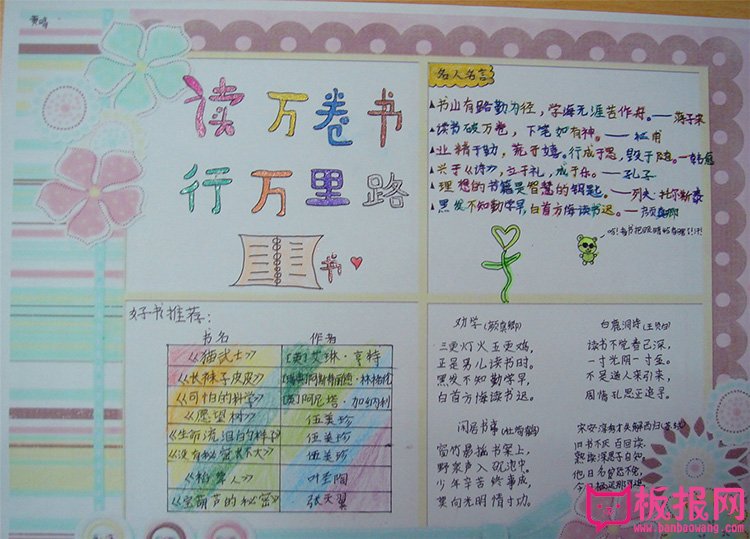 读万卷书
行万里路
书
名人名言
▲书山有路勤为径，学海无涯苦作舟。——
▲读书破万卷，下笔如有神。——杜甫
▲业精于勤，荒于嬉。行成于思，毁于随。—韩愈
▲兴于《诗》，立于礼，成于乐。——孔子
▲理想的书籍是智慧的钥匙。——列夫·托尔斯泰
▲黑发不知勤学早，白首方悔读书迟。——颜真卿
好书推荐：
书名 作者
《猫武士》 [英]艾琳·亨特
《长袜子皮皮》
《可怕的科学》 [英]阿尼塔·加纳利
《愿望树》 伍美玲
《生命流泪的样子》 伍美珍
《没有秘密长不大》 伍美珍
《稻草人》 叶圣陶
《宝葫芦的秘密》 张天翼
劝学(颜真卿)
三更灯火五更鸡，
正是男儿读书时。
黑发不知勤学早，
白首方悔读书迟。
白鹿洞诗(王贞白)
读书不觉春已深，
一寸光阴一寸金。
不是道人来引笑，
周情孔思正追寻。
闲居书事(杜荀鹤)
窗竹影摇书案上，
野泉声入砚池中。
少年辛苦终事成，
莫向光明惰寸功。
旧书不厌百回读，
熟读深思子自知。
板报网
www.banbaowang.com